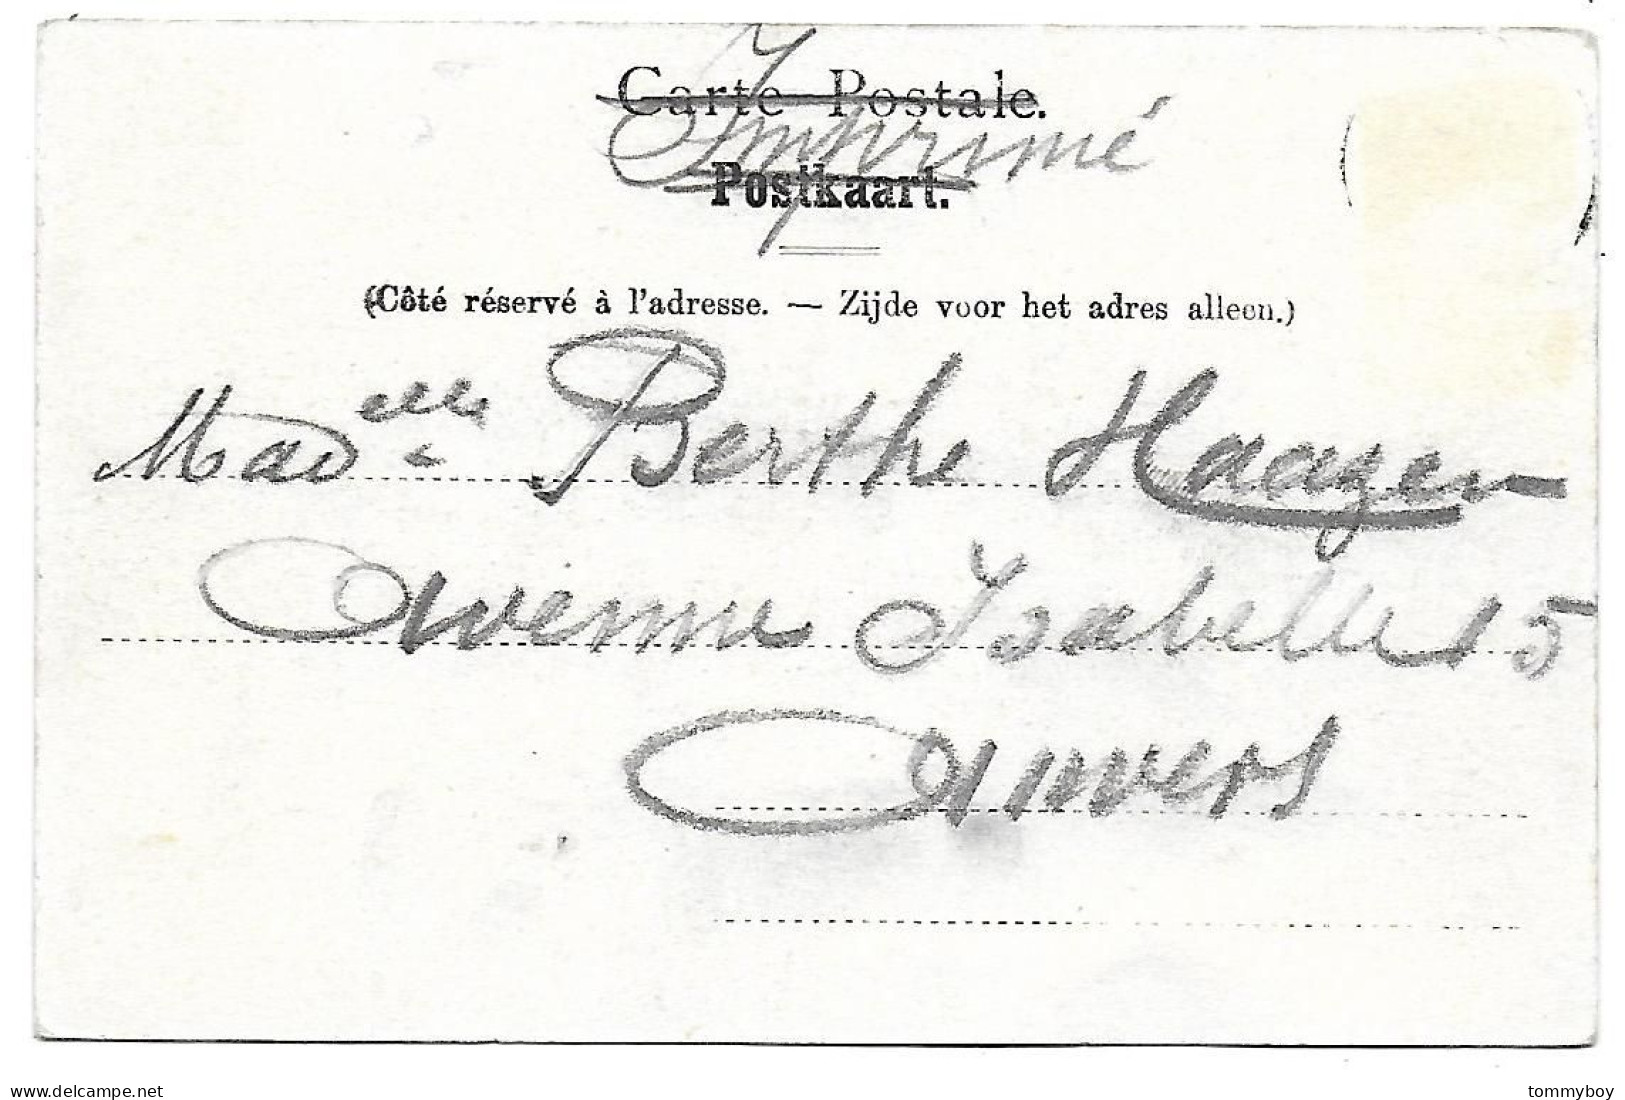 Carte Postale.
Imprimé
Postkaart.
(Côté réservé à l'adresse. — Zijde voor het adres alleen.)
Madelle Berthe Haagen
Avenue Isabelle 15
Anvers
delcampe.net
tommyboy